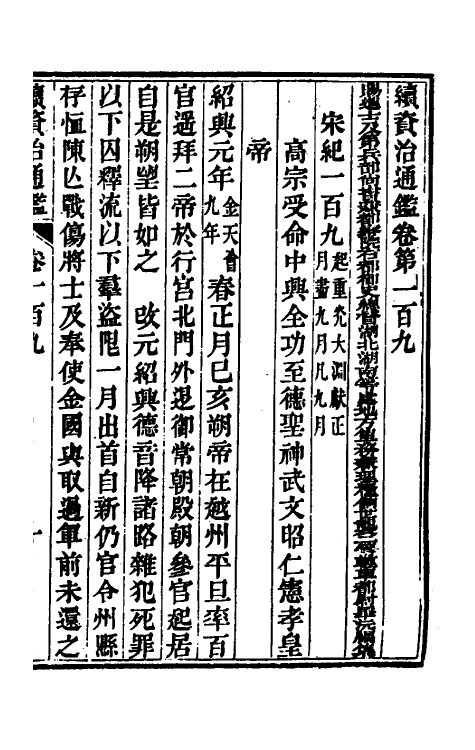 續資治通鑑卷第一百九
賜進士及第兵部尚書
湖北湖南等處地方
宋紀一百九起重光大淵獻正月盡九月凡九月
高宗受命中興全功至德聖神武文昭仁憲孝皇
帝
紹興元年金天會九年春正月己亥朔帝在越州平旦率百
官遥拜二帝於行宮北門外退御常朝殿朝參官起居
自是朔望皆如之 改元紹興德音降諸路雜犯死罪
以下囚釋流以下羣盜限一月出首自新仍官令州縣
存恤陳亡戰傷將士及奉使金國與取過軍前未還之
續資治通鑑 卷一百九 一